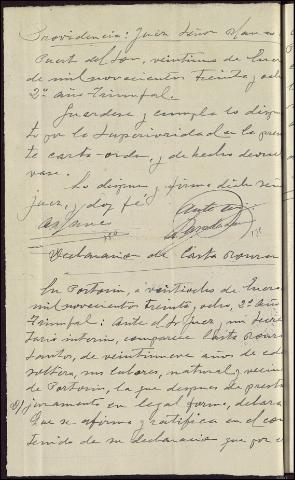 Providencia: Juez Señor
Puerto del Son, veintiuno de Enero
de mil novecientos treinta y ocho
2º Año Triunfal.
Guardese y cumpla lo dispues
to por la Superioridad en la presen
te carta-orden, y de hecho devuel
vase.
Lo dispuso y firma dicho señor
juez, y doy fé
Ante mi
Declaración de Carta
En Portosin, a veintidos de Enero
mil novecientos treinta y ocho, 2º Año
Triunfal: Ante el Sr Juez, mi Secre
tario interino, comparece Carta
Santos, de veintinueve años de edad
soltera, sus labores, natural y vecina
de Portosin, la que despues de prestar
juramento en legal forma, declara
Que se afirma y ratifica en el con
tenido de su declaracion que por